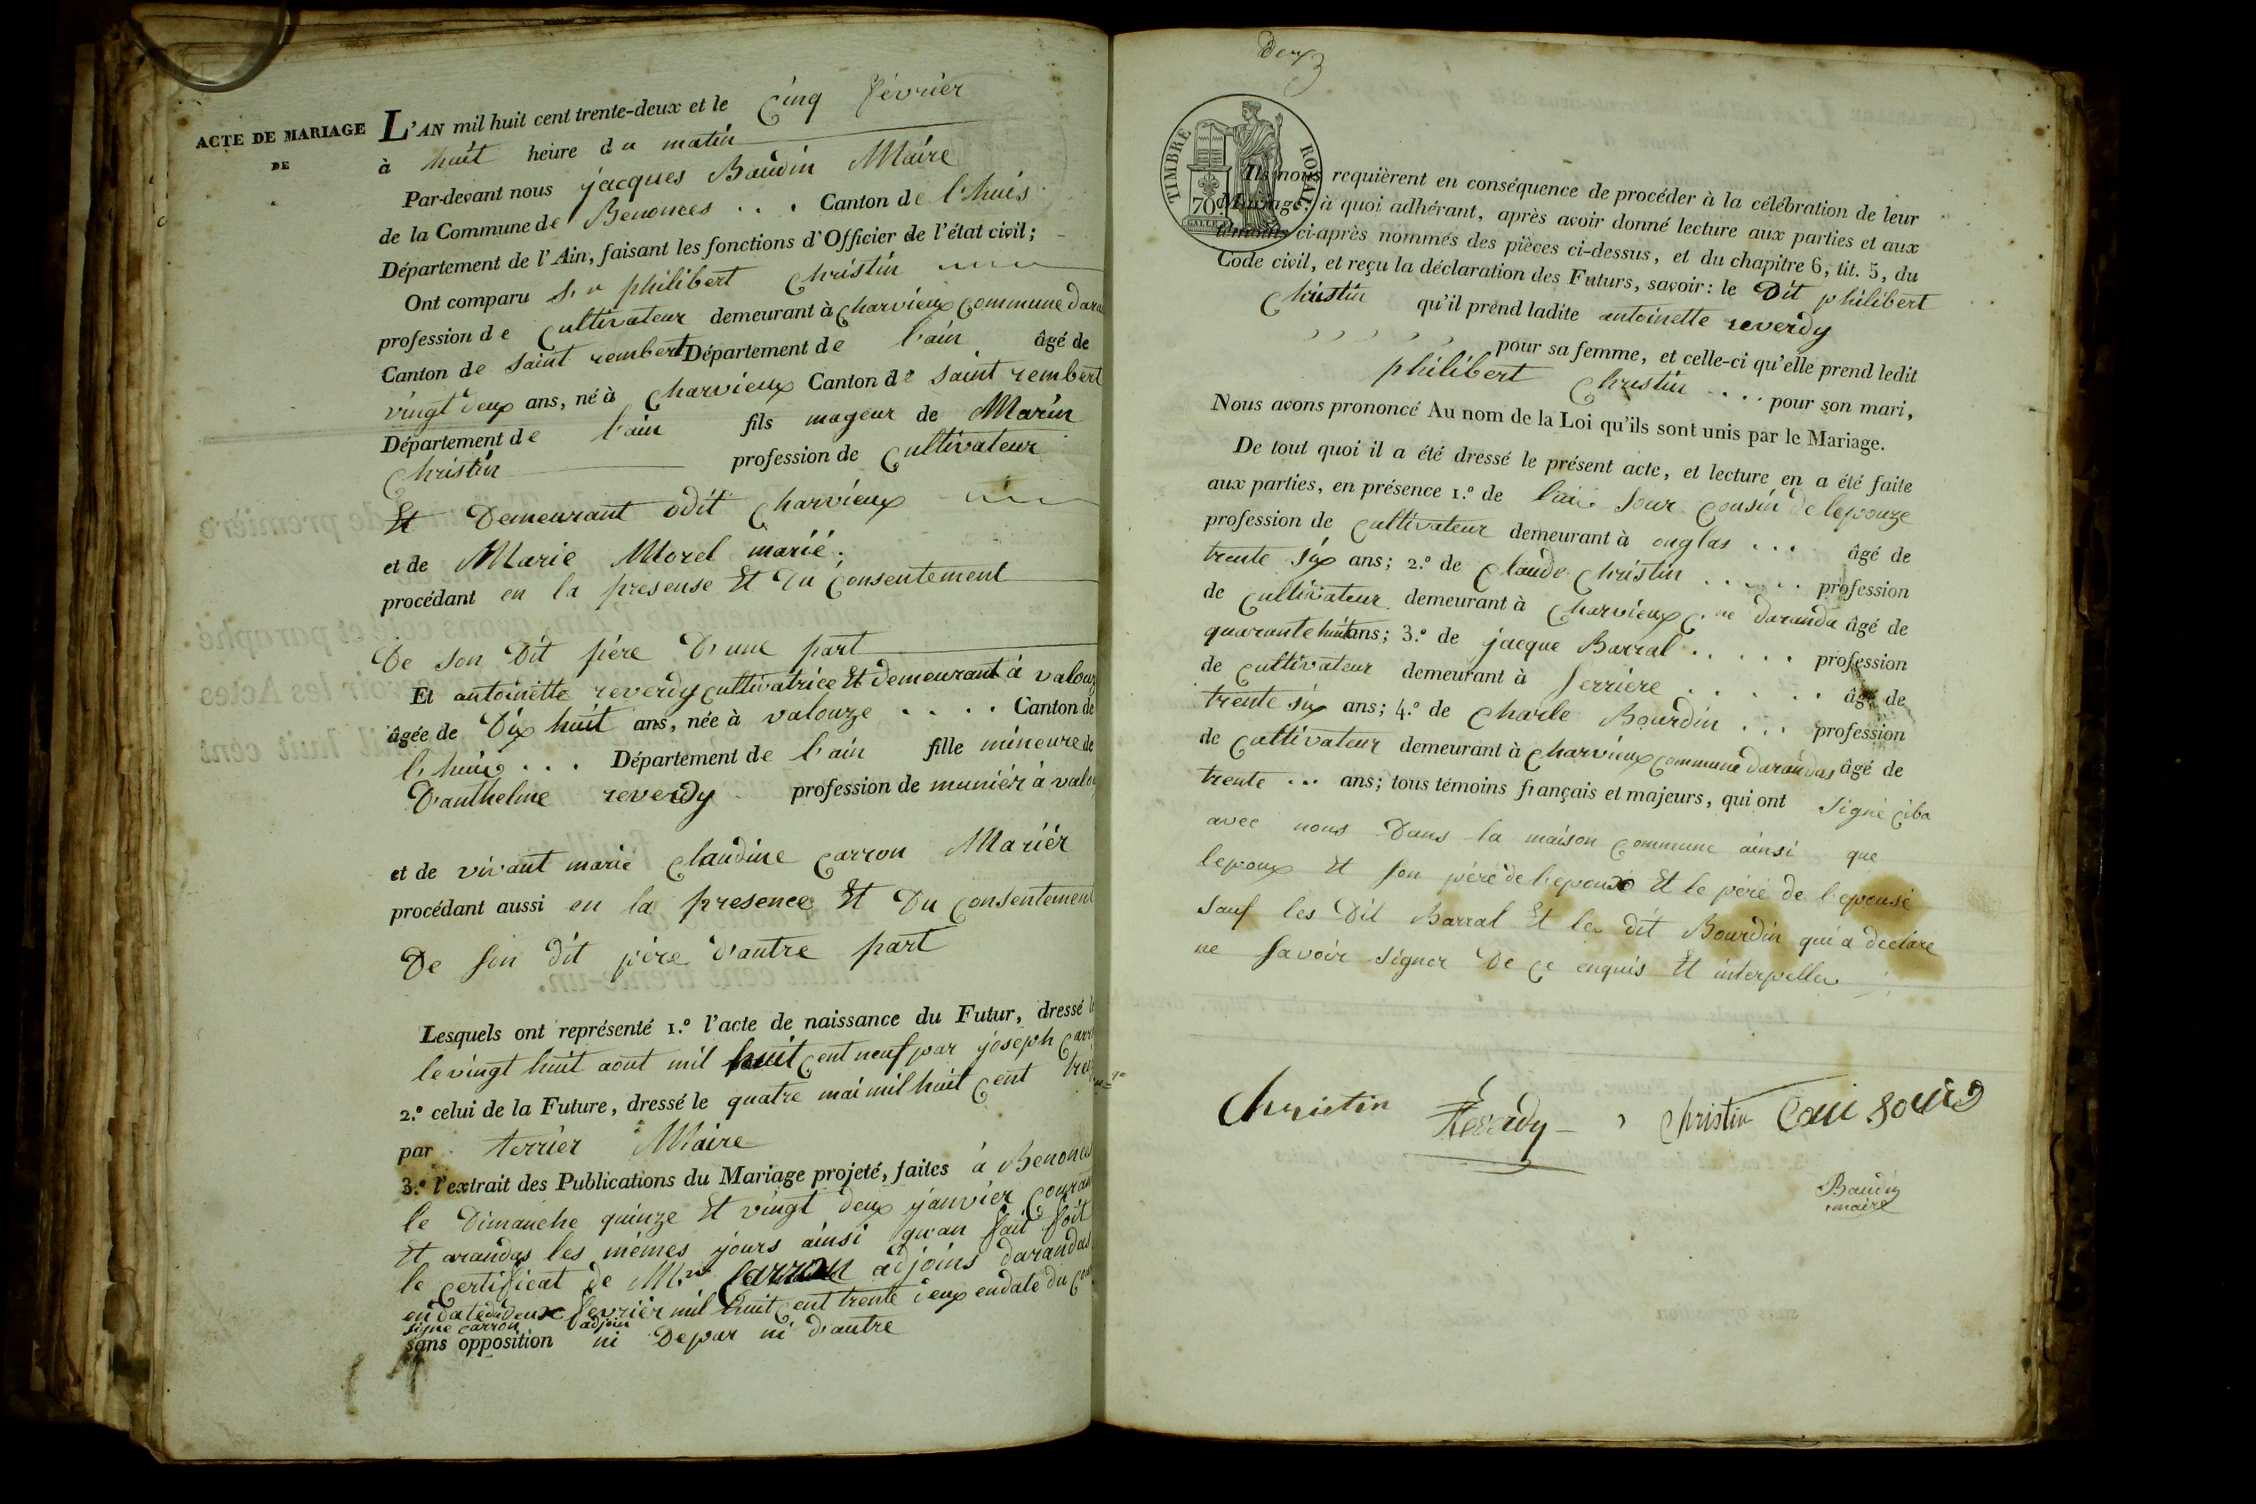 ACTE DE MARIAGE
DE
L'AN mil huit cent trente-deux et le cinq février
à huit heure du matin
Par-devant nous jacques Baudin Maire
de la Commune de Benonces . . . Canton de l'huis
Département de l'Ain, faisant les fonctions d'Officier de l'état civil;
Ont comparu philibert Christin
profession de Cultivateur demeurant à charvieux commune
Canton de saint rembert Département de l'ain âgé de
vingt deux ans, né à Charvieux Canton de saint rembert
Département de l'ain fils mageur de Marin
Christin profession de Cultivateur
Et Demeurant odit Charvieux
et de Marie Morel marié.
procédant en la presense Et Du Consentement
De son Dit père D'une part
Et antoinette reverdy cultivatrice Et demeurant à
âgée de Dix huit ans, née à valouze . . . . Canton de
l'huis . . . Département de l'ain fille mineure de
D'anthelme reverdy profession de muniér à
et de vivant marie Claudine Carron Mariér
procédant aussi en la presence Et Du Consentement
De son dit père d'autre part
Lesquels ont représenté 1.º l'acte de naissance du Futur, dressé
le vingt huit aout mil huit cent neuf par joseph
2.º celui de la Future, dressé le quatre mai mil huit cent
par terrier Maire
3.º l'extrait des Publications du Mariage projeté, faites à Benonces
le Dimanche quinze Et vingt deux janvier
Et arandas les mêmes jours ainsi qu'an fait foit
le certificat de Carron adjoins darandas
en date du deux fevriér mil huit cent trente deux en date du
signe carron adjoin
sans opposition ni De par ni d'autre
Deux
TIMBRE ROYAL
70
Ils nous requièrent en conséquence de procéder à la célébration de leur
Mariage; à quoi adhérant, après avoir donné lecture aux parties et aux
témoins ci-après nommés des pièces ci-dessus, et du chapitre 6, tit. 5, du
Code civil, et reçu la déclaration des Futurs, savoir: le Dit philibert
Christin qu'il prend ladite antoinette reverdy
pour sa femme, et celle-ci qu'elle prend ledit
philibert Christin . . . . pour son mari,
Nous avons prononcé Au nom de la Loi qu'ils sont unis par le Mariage.
De tout quoi il a été dressé le présent acte, et lecture en a été faite
aux parties, en présence 1.º de cousin de lepouze
profession de Cultivateur demeurant à onglas . . . âgé de
trente six ans; 2.º de Claude Christin . . . . . profession
de Cultivateur demeurant à Charvieux daranda âgé de
quarante huit ans; 3.º de jacque Barral . . . . . profession
de Cultivateur demeurant à Serriere . . . . . âgé de
trente six ans; 4.º de Charle Bourdin . . . profession
de Cultivateur demeurant à Charvieux commune darandas âgé de
trente ... ans; tous témoins français et majeurs, qui ont signé
avec nous Dans la maison commune ainsi que
lepoux Et son père Et le père de l'epouse
sauf les Dit Barral Et le dit Bourdin qui a declaré
ne savoir signer De ce enquis Et interpelle
Christin Reverdy Christin
Baudin
maire